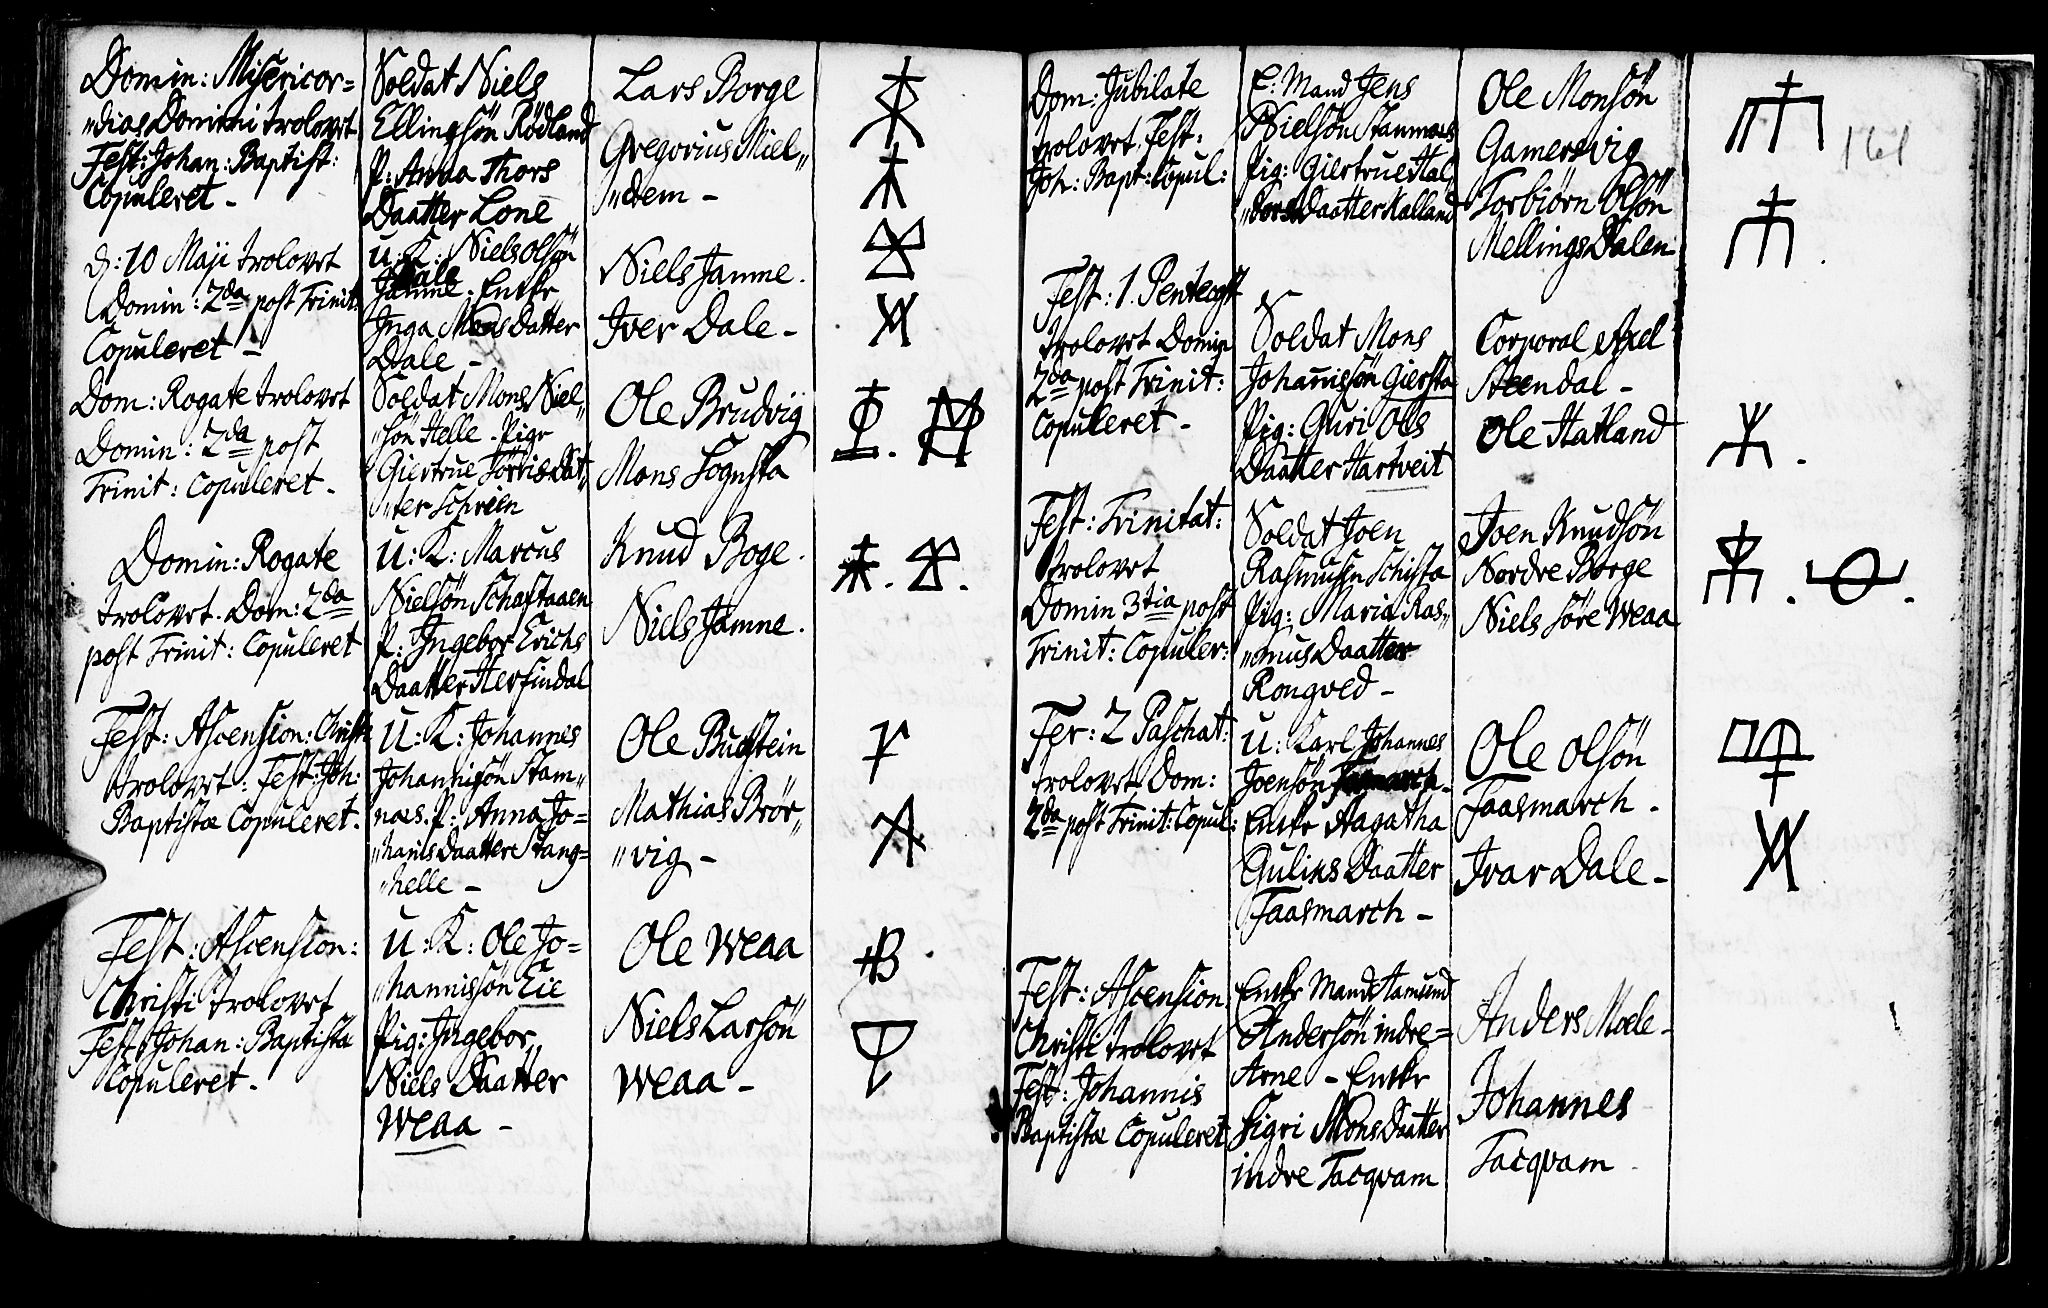 Domin: Misericor=
"dias Domini trolovet
Fest: Johan: Baptist:
Copuleret -
Soldat Niels
Ellingsön Rödland
P: Anna Thors
Daatter Lone
Lars Borge
Gregorius Miel„
"dem -
d: 10 Maji trolovet
Domin: 2da post Trinit:
Copuleret -
u: K: Niels Olsön
Jamne. Enke
Inga Mons Datter
Dale -
Niels Jamne.
Iver Dale -
Dom: Rogate trolovet
Domin: 2da post
Trinit: Copuleret -
Soldat Mons Niel„
"sön Helle - Pige
Giertrue
"ter Schreen
Ole Brudvig
Mons Sognsta
Domin: Rogate
trolovet. Dom: 2da
post Trinit: Copuleret
u: K: Marcus
Nielsön Schaftaaen
P: Ingebor Erichs
Daatter Herfindal
Knud Boge.
Niels Jamne.
Fest: Ascension: Christi
trolovet: Fest: Joh:
Baptistæ Copuleret.
u: K: Johannes
Johannisön Stam„
naes. P: Anna Jo=
"hanis Daatter Stang=
"helle -
Ole Buchstein
Mathias Brör„
"vig -
Fest: Ascension:
Christi trolovet
Fest: Johan: Baptistæ
Copuleret -
u: K: Ole Jo=
"hannissön Eie
Pig: Ingebor
Niels Daatter
Weaa -
Ole Weaa
Niels Larsön
Weaa -
161
Dom: Jubilate
trolovet. Fest:
Joh: Bapt: Copul:
E: Mand Jens
Nielsön Stamnaes
Pig: Giertrue Hal„
Daatter Kalland
Ole Monsön
Gamersvig
Torbiörn Olsön
Mellings Dalen
Fest: 1. Pentecost
trolovet Domin
2da post Trinit:
Copuleret -
Soldat Mons
Johannisön Giersta
Pig: Guri Ols
Daatter Hartveit
Corporal Axel
Steendal -
Ole Hatland
Fest: Trinitat:
trolovet
Domin 3tia post
Trinit: Copuler:
Soldat Joen
Rasmusen Schifta
Pig: Maria Ras„
"mus Daatter
Rongved -
Joen Knudsön
Nordre Borge
Niels Söre Weaa
Fer: 2 Paschat:
trolovet Dom:
2da post Trinit: Copul:
u: Karl Johannes
Joensön
Enke Aagatha
Guliks Daatter
Faasmarch -
Ole Olsön
Faasmarch -
Ivar Dale -
Fest: Ascension
Christi trolovet
Fest: Johannis
Baptistæ Copuleret
Enke Mand Aamund
Andersön indre=
Arne - Enke
Sigri Mons Daatter
indre Tacqvam
Anders Moele -
Johannes
Tacqvam -